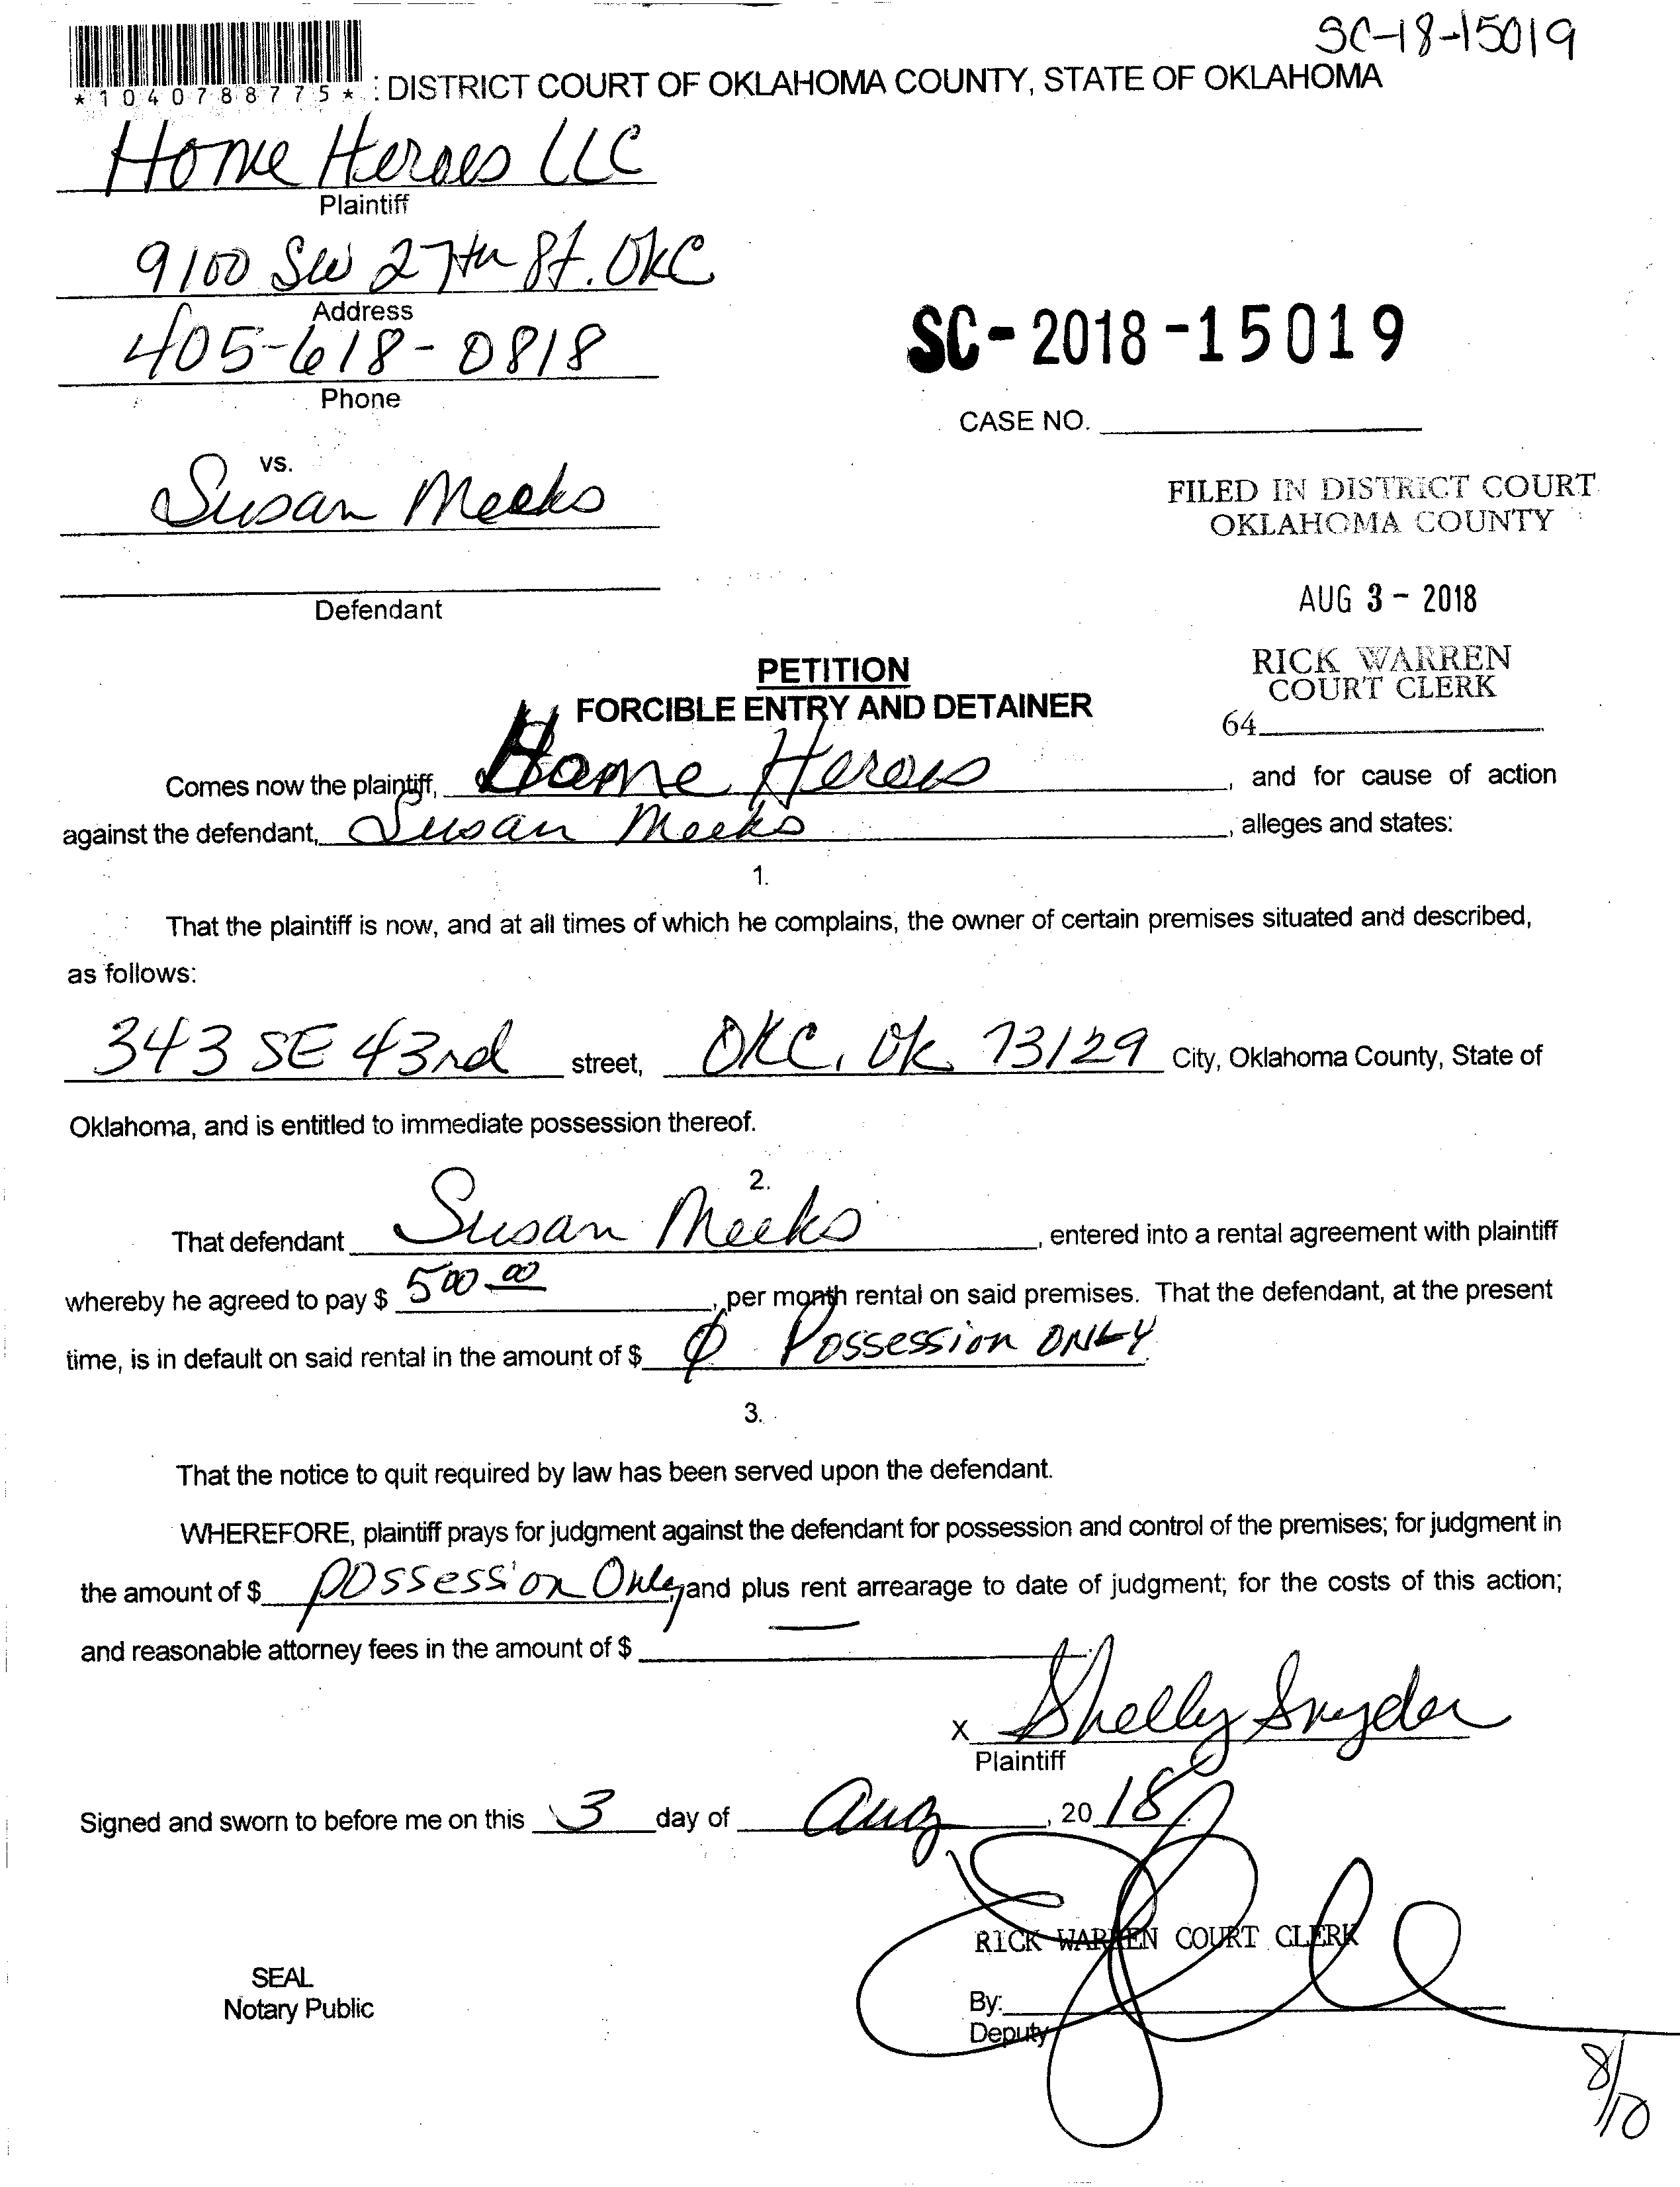 SC-18-15019
*1040788775*
: DISTRICT COURT OF OKLAHOMA COUNTY, STATE OF OKLAHOMA
Home Heroes LLC
Plaintiff
9100 SW 27th St. OKC
Address
405-618-0818
Phone
SC-2018-15019
CASE NO.
vs.
Susan Meeks
FILED IN DISTRICT COURT
OKLAHOMA COUNTY
Defendant
AUG 3 - 2018
RICK WARREN
COURT CLERK
64
PETITION
FORCIBLE ENTRY AND DETAINER
Comes now the plaintiff, Home Heroes, and for cause of action
against the defendant, Susan Meeks, alleges and states:
1.
That the plaintiff is now, and at all times of which he complains, the owner of certain premises situated and described,
as follows:
343 SE 43rd street, OKC, Ok 73129 City, Oklahoma County, State of
Oklahoma, and is entitled to immediate possession thereof.
2.
That defendant Susan Meeks, entered into a rental agreement with plaintiff
whereby he agreed to pay $ 500.00, per month rental on said premises. That the defendant, at the present
time, is in default on said rental in the amount of $ ∅ Possession ONLY.
3.
That the notice to quit required by law has been served upon the defendant.
WHEREFORE, plaintiff prays for judgment against the defendant for possession and control of the premises; for judgment in
the amount of $ possession Only, and plus rent arrearage to date of judgment; for the costs of this action;
and reasonable attorney fees in the amount of $
X Shelly Snyder
Plaintiff
Signed and sworn to before me on this 3 day of Aug, 2018.
RICK WARREN COURT CLERK
SEAL
Notary Public
By:
Deputy
8/10